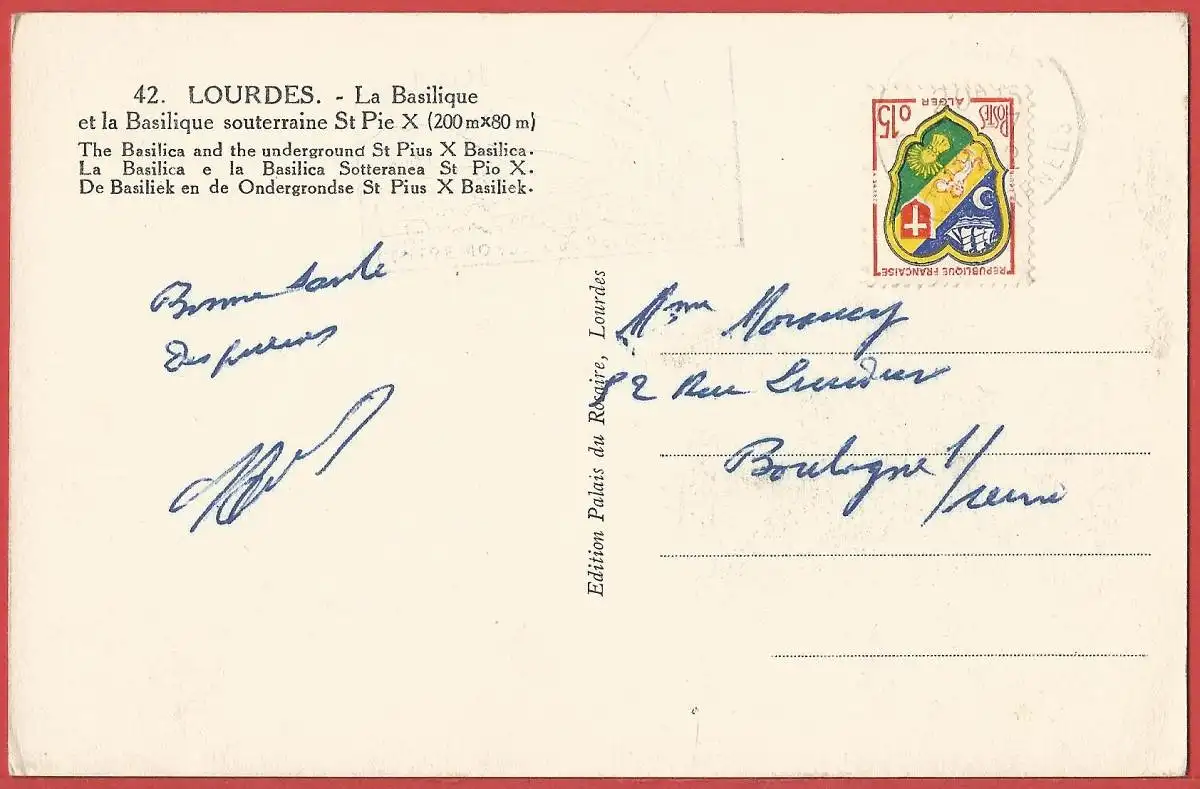 42. LOURDES. - La Basilique
et la Basilique souterraine St Pie X (200m×80m)
The Basilica and the underground St Pius X Basilica.
La Basilica e la Basilica Sotteranea St Pio X.
De Basiliek en de Ondergrondse St Pius X Basiliek.
Bonne Santé
Edition Palais du Rosaire, Lourdes
POSTES
ALGER
0.15
REPUBLIQUE FRANCAISE
Mme
2 Rue
Boulogne s/seine